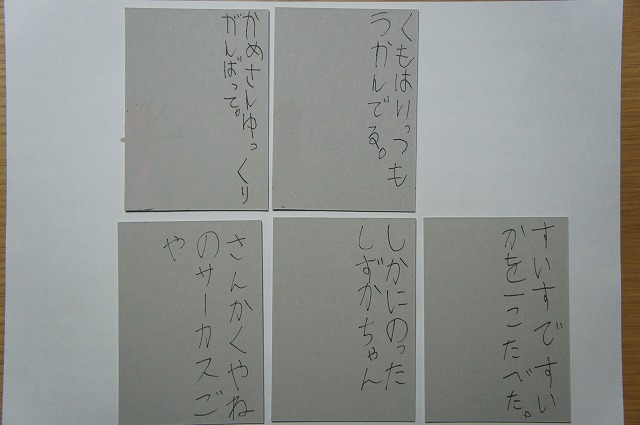 くもはいっつも
うかんでる。
かめさんゆっくり
がんばって。
すいすですい
かを一こたべた。
しかにのった
しずかちゃん
さんかくやね
のサーカスご
や